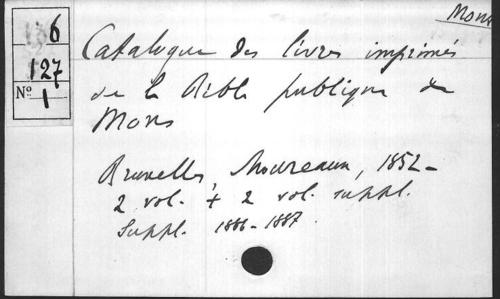 Mons
6
127
N° 1
Catalogue des livres imprimés
de la Bibl. publique de
Mons
Bruxelles, Moureaux, 1852-
2 vol. + 2 vol. suppl.
Suppl. 1886-1887.